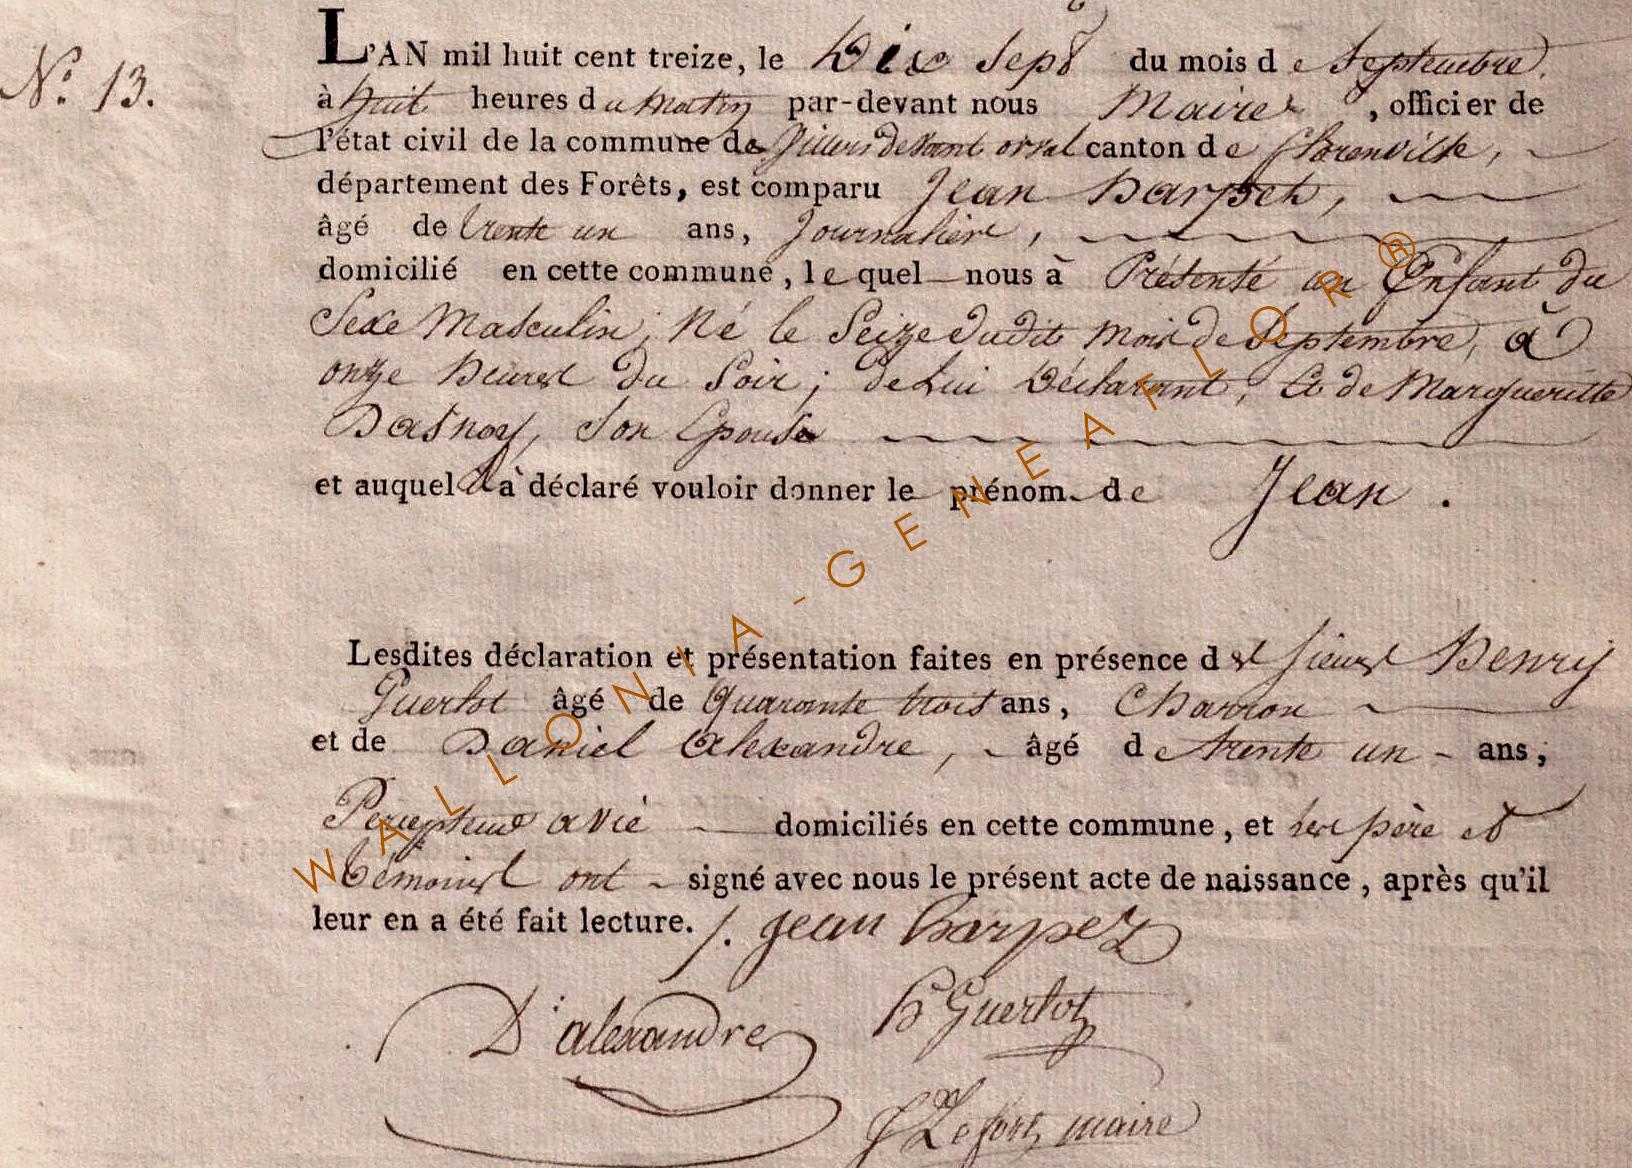 N.º 13.
L'AN mil huit cent treize, le Dix Sept du mois de Septembre,
à huit heures du Matin par-devant nous Maire, officier de
l'état civil de la commune de Villers devant orval canton de florenville,
département des Forêts, est comparu Jean Harpeh,
âgé de trente un ans, Journalier,
domicilié en cette commune, lequel nous à Présenté un Enfant du
Sexe Masculin, Né le Seize dudit Mois de Septembre, à
onze heures du Soir; de Lui Déclarant, Et de Margueritte
Dasnoy, Son Epouse
et auquel Il a déclaré vouloir donner le prénom de Jean.
Lesdites déclaration et présentation faites en présence des sieurs Henry
Guerlot âgé de Quarante trois ans, Charron
et de Daniel Alexandre, âgé de trente un ans,
Percepteur a vie domiciliés en cette commune, et les père et
témoins ont signé avec nous le présent acte de naissance, après qu'il
leur en a été fait lecture. /. jean harpez
D: alexandre
h Guerlot
Lefort, maire
WALLONIA-GENEAFLOR®